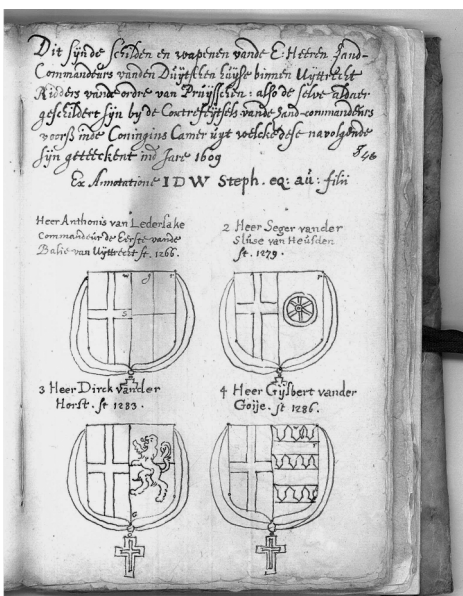 Dit sijnde schilden en wapenen vande E: Heeren Land-
Commandeurs vanden Duijtschen huijse binnen Uijttrecht
Ridders vande ordre van Pruijsschen: also de selve aldaer
geschildert sijn by de Contrefeijtsels vande Land-commandeurs
voorß inde Coningins Camer uijt welcke dese navolgende
sijn geteeckent ind Jare 1609
Ex Annotatione I D W Steph. eq: aù: filii
Heer Anthonis van Lederlake
Commandeur de Eerste vande
Balie van Uijttrecht st. 1266.
2 Heer Seger vander
Sluse van Heusden
st. 1279.
3 Heer Dirck vander
Horst. st 1283.
4 Heer Gijsbert vander
Goije. st 1286.